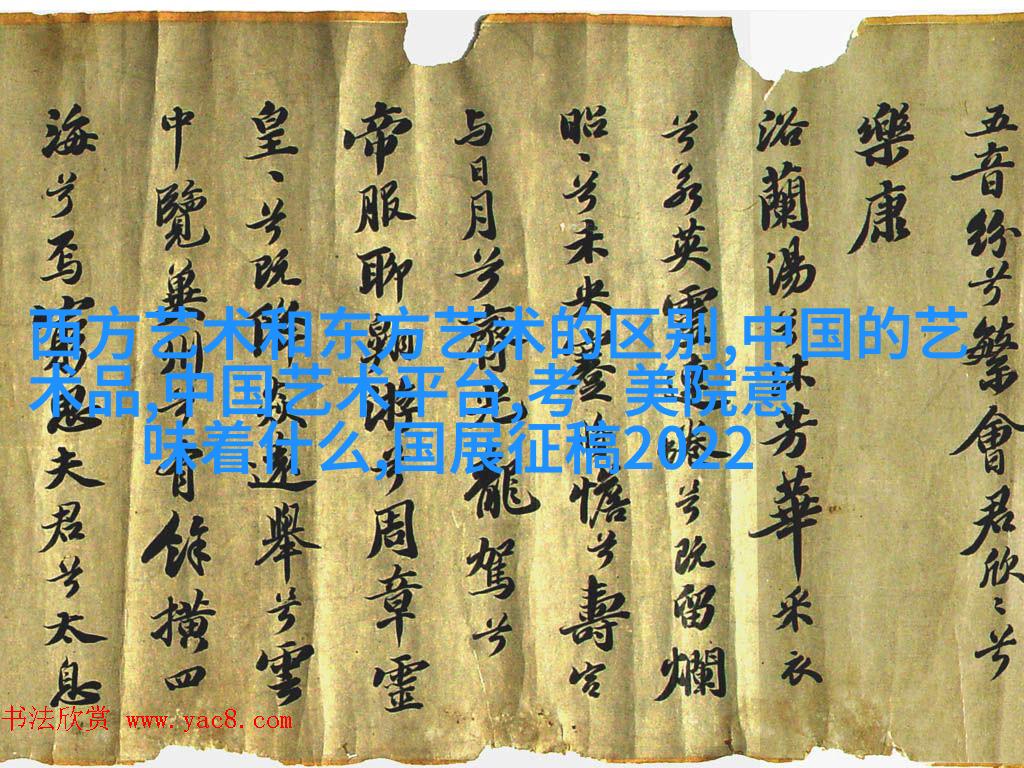 五音紛兮繁會君欣〻兮
樂康
浴蘭湯兮沐芳華采衣
兮若英靈連蜷兮既留爛
昭〻兮未央蹇憺兮壽宮
与日月兮齊光龍駕兮
帝服聊翱遊兮周章靈
皇〻兮既降猋遠舉兮雲
中覽冀州兮有餘橫四
海兮焉窮思夫君兮太息
西方艺术和东方艺术的区别,中国的艺
术品,中国艺术平台,考 美院意
味着什么,国展征稿2022
书法欣赏 www.yac8.com